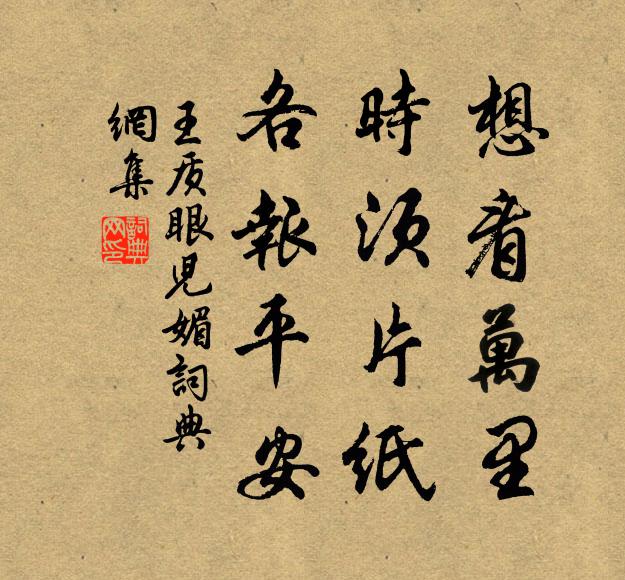 想看萬里
時須片紙
各報平安
王质眼児媚詞典
網集
詞典
网印